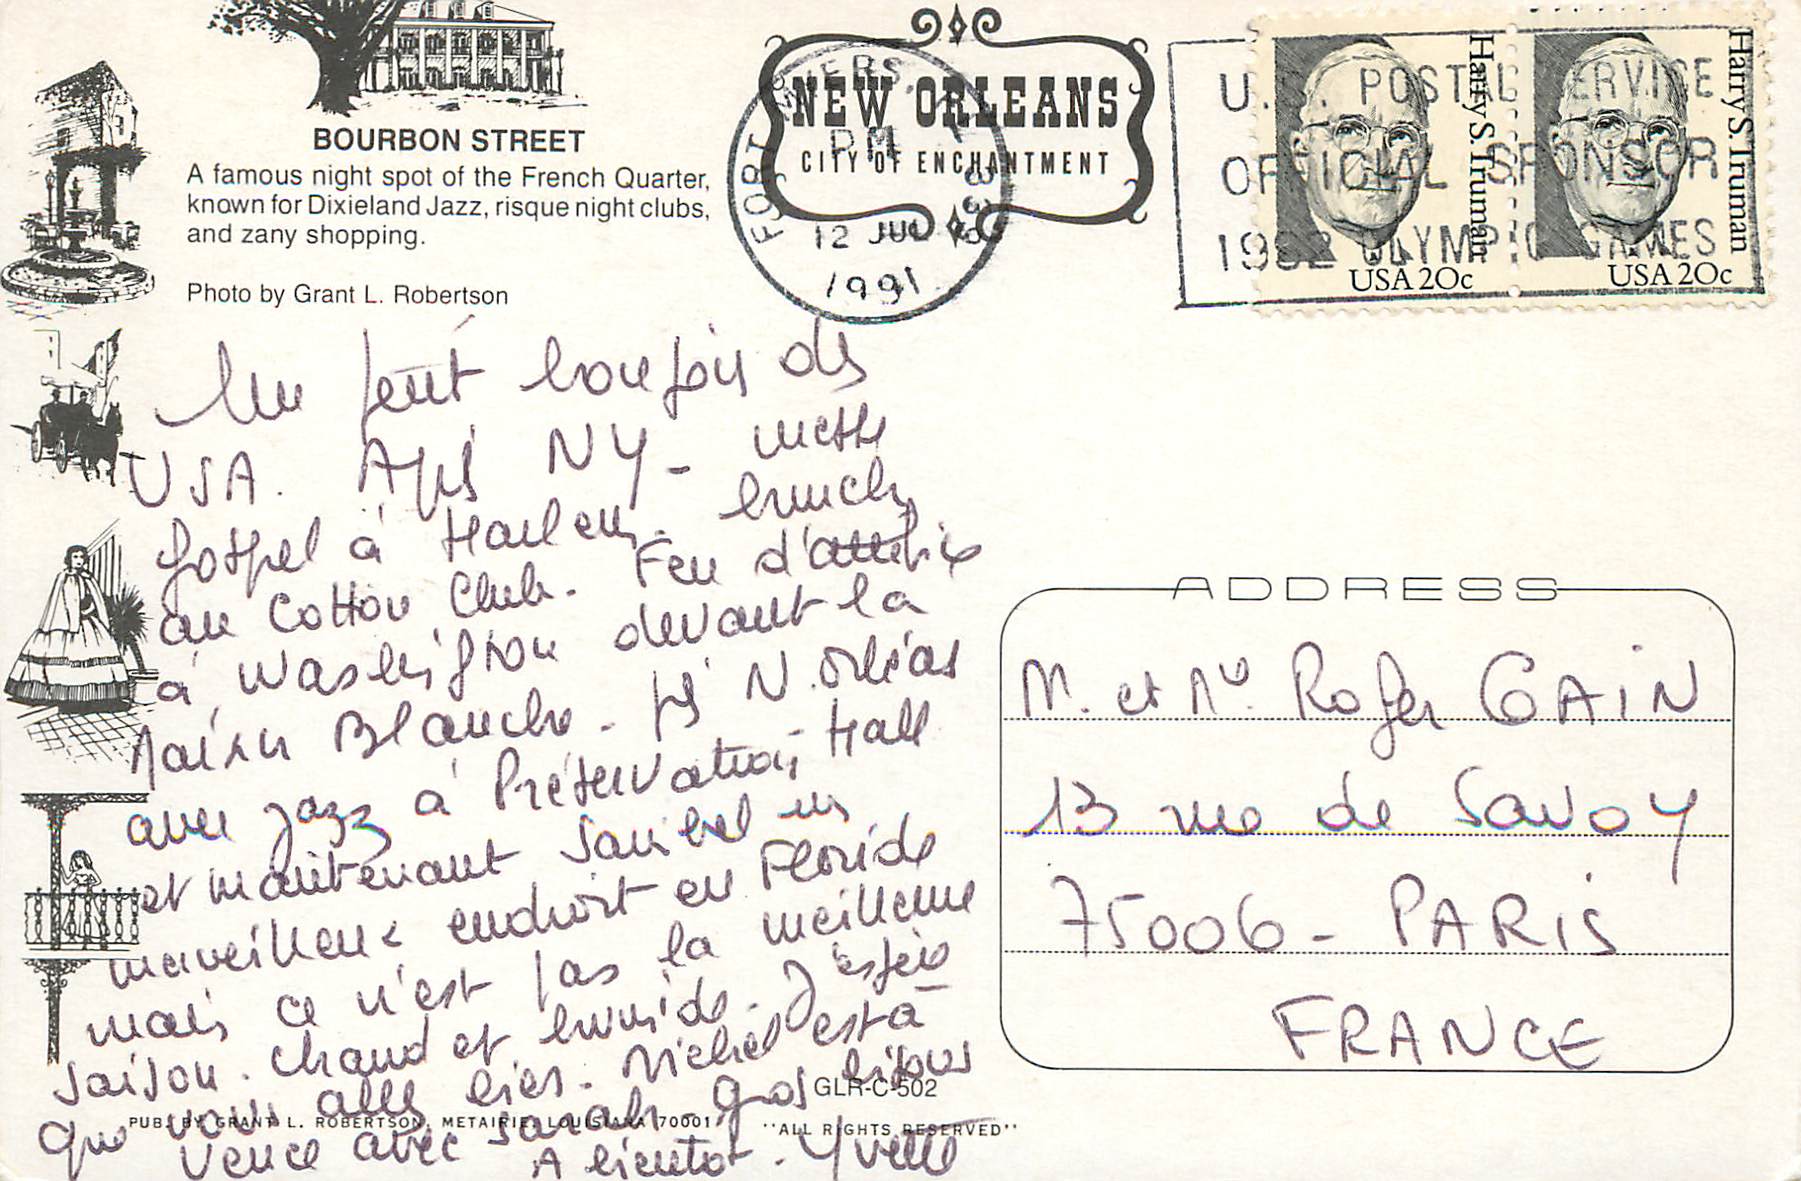 BOURBON STREET
A famous night spot of the French Quarter,
known for Dixieland Jazz, risque night clubs,
and zany shopping.
Photo by Grant L. Robertson
NEW ORLEANS
CITY OF ENCHANTMENT
FORT MYERS, FL
PM
12 JUL
1991
339
U.S. POSTAL SERVICE
OFFICIAL SPONSOR
1992 OLYMPIC GAMES
Harry S. Truman
USA 20c
Harry S. Truman
USA 20c
Un petit bonjour des
USA. Après NY - messe
gospel à Harlem. brunch
au Cotton Club. Feu d'artifice
à Washington devant la
Maison Blanche - puis N. Orléans
avec jazz à Préservation Hall
et maintenant Sanibel un
merveilleux endroit en Floride
mais ce n'est pas la meilleure
saison. chaud et humide. J'espère
que vous allez bien. Michel est à
Vence avec Sarah. Gros bisous
A bientôt. Yvette
ADDRESS
M. et Me. Roger GAIN
13 rue de Savoy
75006 - PARIS
FRANCE
GLR-C-502
PUB. BY GRANT L. ROBERTSON, METAIRIE, LOUISIANA 70001
"ALL RIGHTS RESERVED"